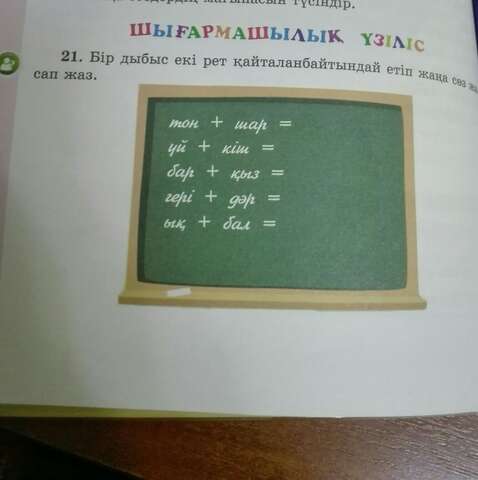 мағынасын түсіндір.
ШЫҒАРМАШЫЛЫҚ ҮЗІЛІС
21. Бір дыбыс екі рет қайталанбайтындай етіп жаңа сөз
сап жаз.
тон + шар =
үй + кіш =
бар + қыз =
гері + дәр =
ық + бал =